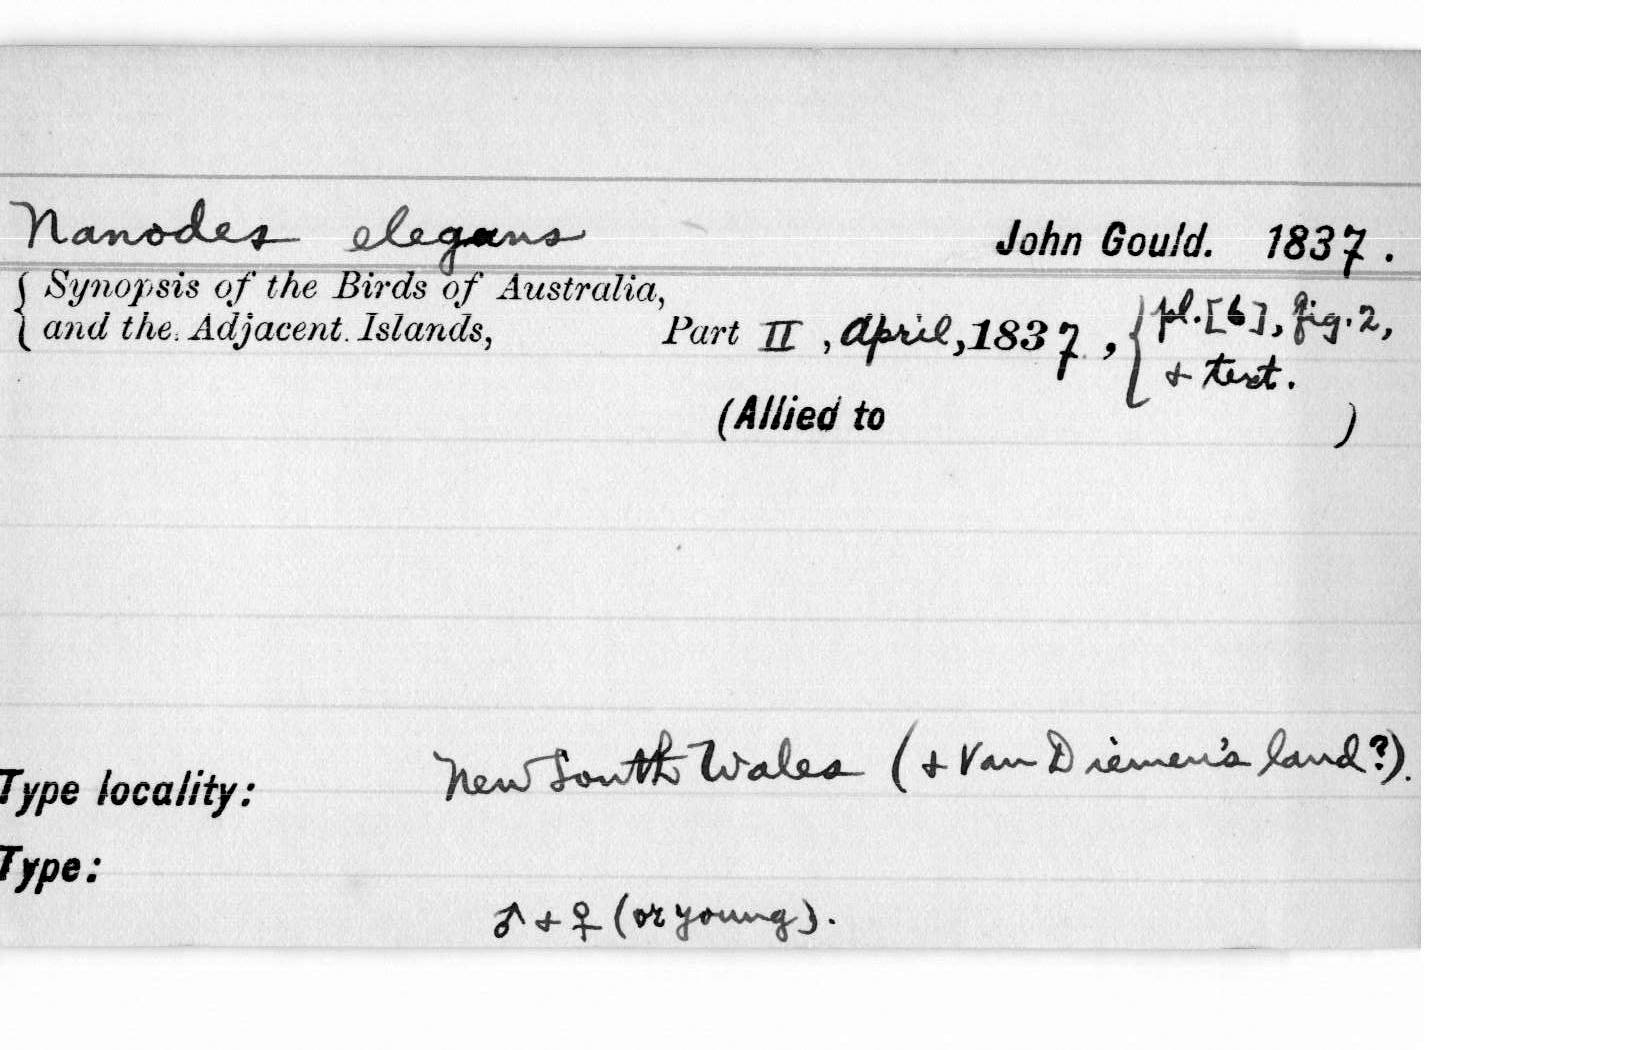 Nanodes elegans John Gould. 1837.
{ Synopsis of the Birds of Australia,
and the Adjacent Islands, Part II, April, 1837, { pl. [6], fig. 2,
+ text.
(Allied to )
Type locality: New South Wales (+ Van Diemen's land?).
Type:
♂ + ♀ (or young).